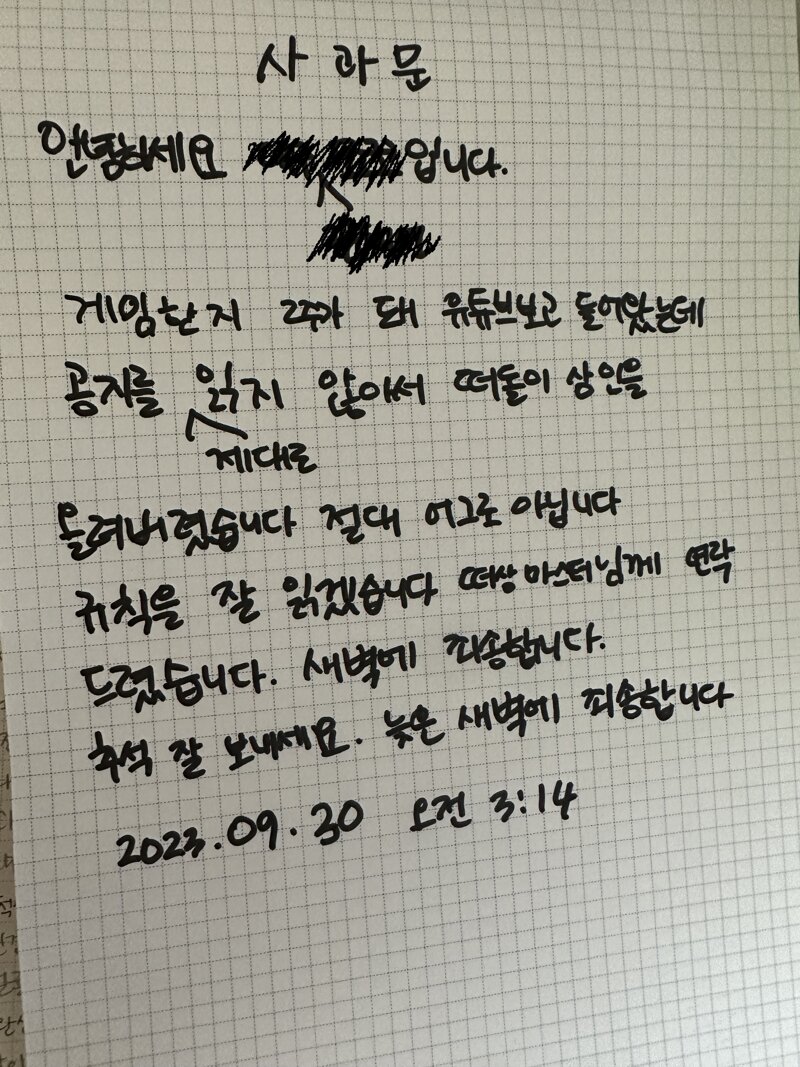 사과문
안녕하세요 입니다.
게임한지 2주가 돼 유튜브보고 들어왔는데
공지를 읽지 않아서 떠돌이 상인을
제대로
올려버렸습니다 절대 어그로 아닙니다
규칙을 잘 읽겠습니다 떠상마스터님께 연락
드렸습니다. 새벽에 죄송합니다.
추석 잘 보내세요. 늦은 새벽에 죄송합니다
2023.09.30 오전 3:14